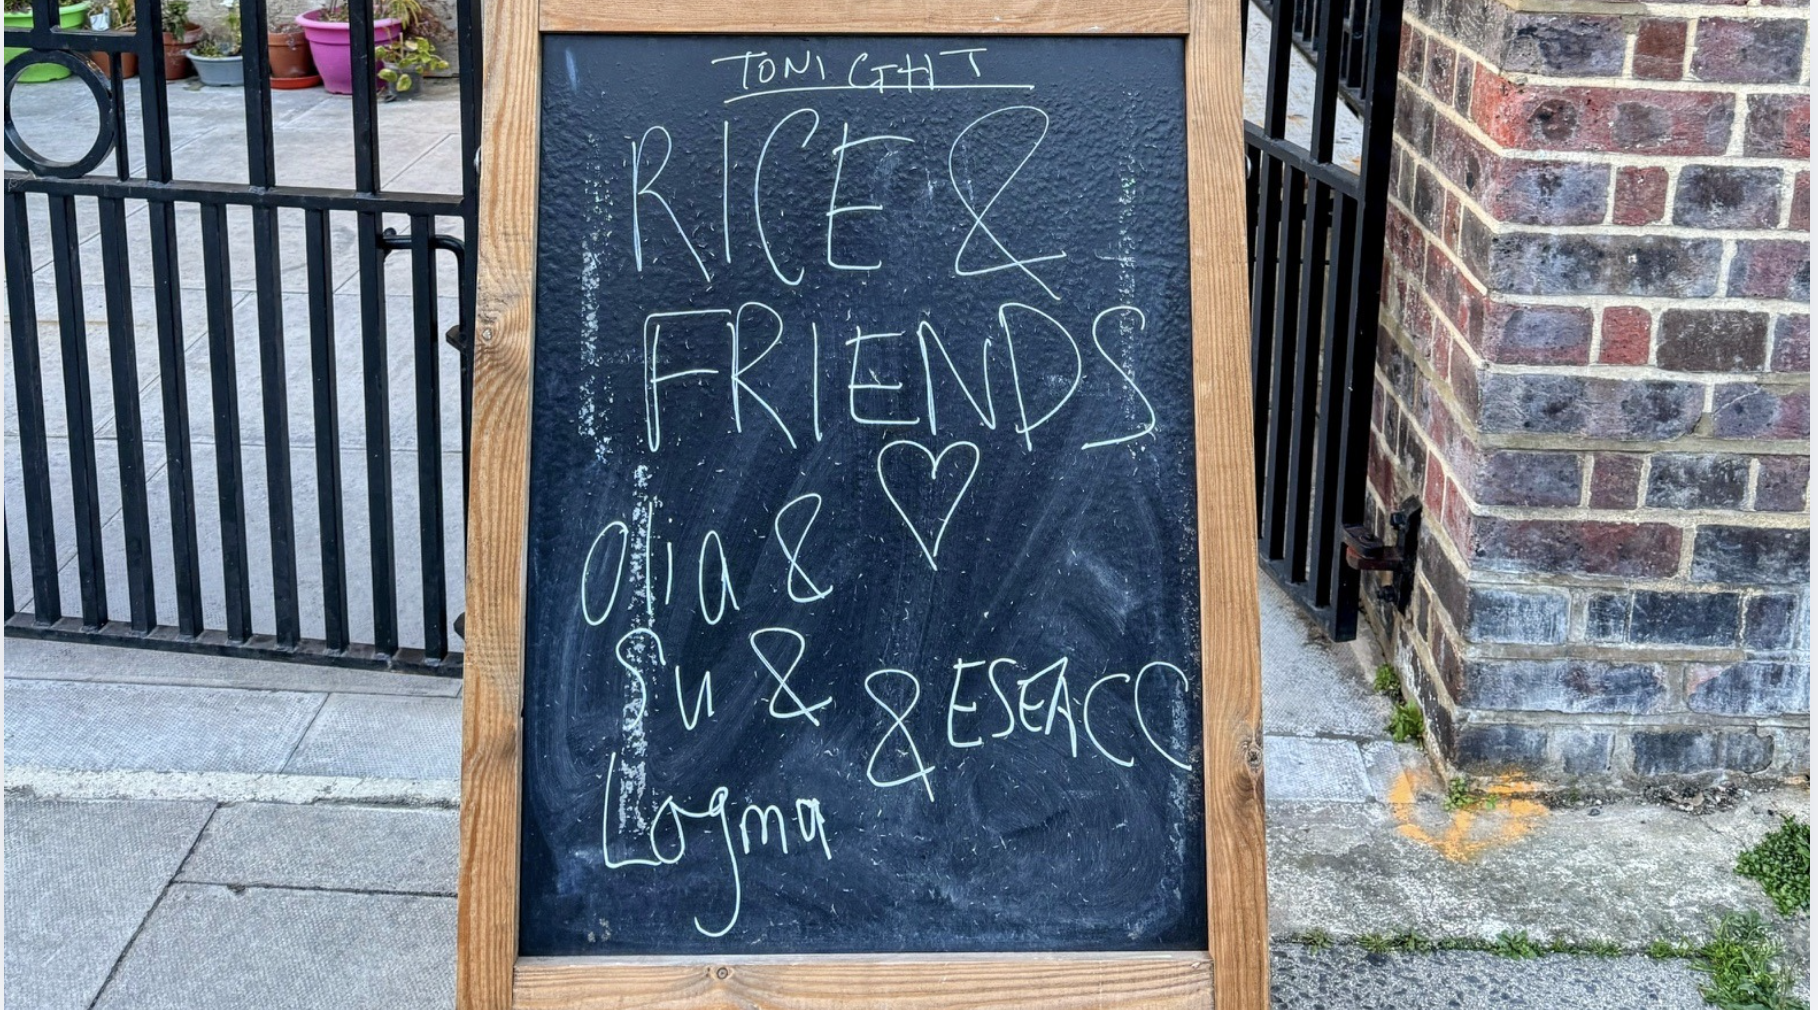 TONIGHT
RICE &
FRIENDS
Olia &
Su &
& ESEACC
Logma